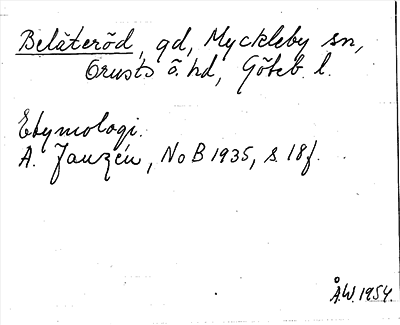 Beläteröd, gd, Myckleby sn,
Orusts ö. hd, Göteb. l.
Etymologi.
A. Janzén, NoB 1935, s. 18f.
Å.W. 1954.